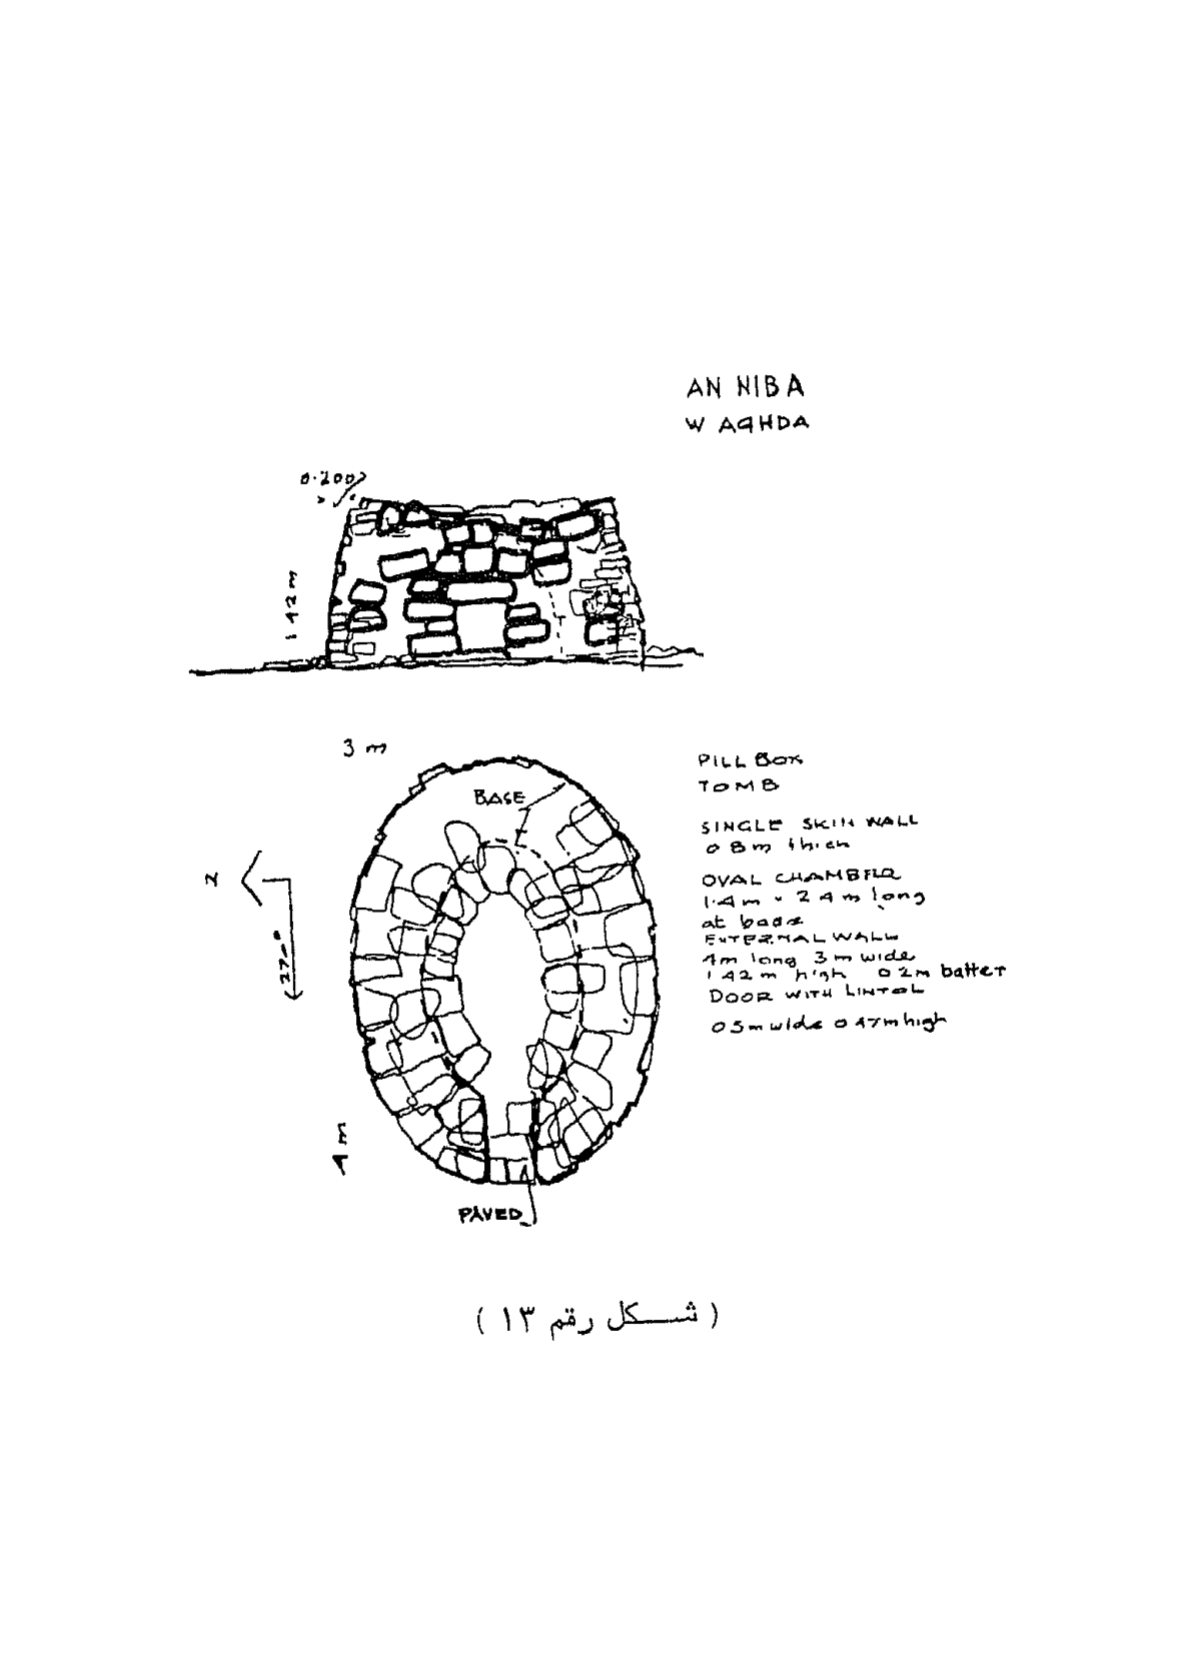 AN NIBA
W AQHDA
0.200
1.42m
3 m
BASE
N
270°
4 m
PAVED
PILL BOX
TOMB
SINGLE SKIN WALL
0 8m thick
OVAL CHAMBER
1.4m × 2 4m long
at base
EXTERNAL WALL
4m long 3m wide
1 42m high 0 2m batter
DOOR WITH LINTOL
0 5m wide 0 47m high
( شكل رقم ١٣ )